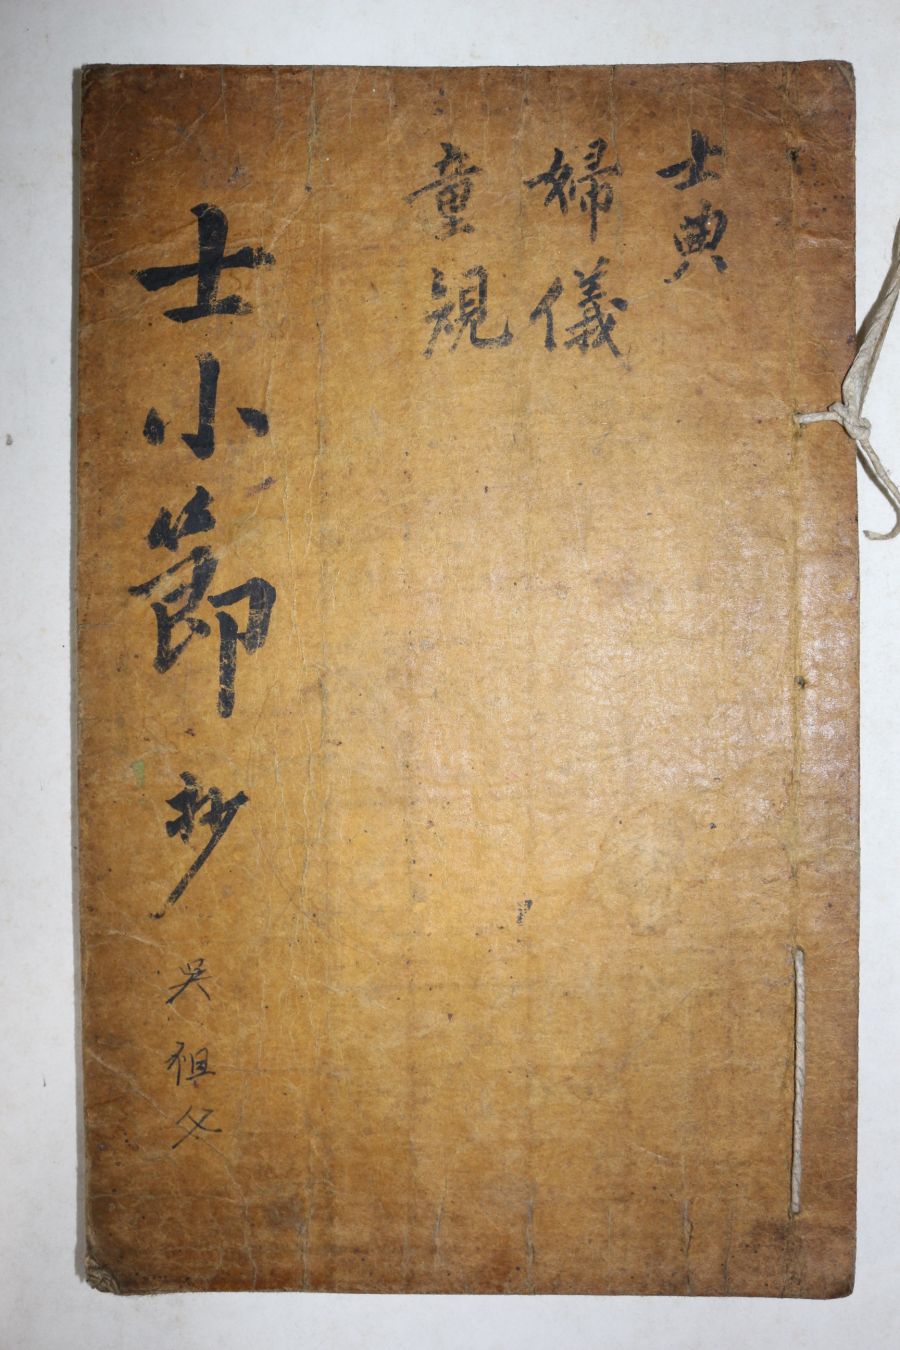 士典
婦儀
童規
士小節 抄
吳祖父